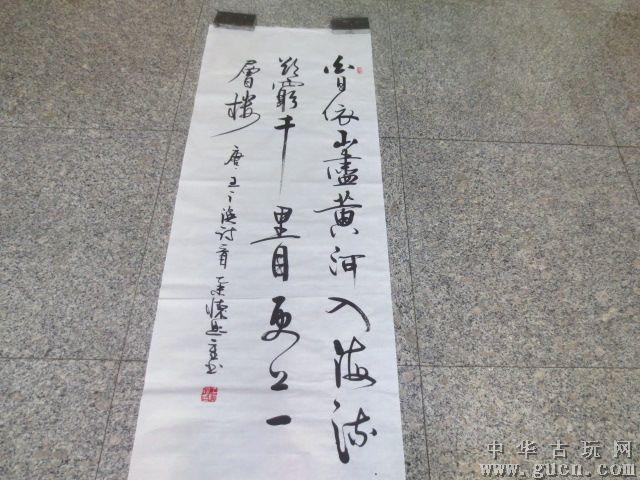 白日依山盡黄河入海流
欲窮千里目更上一
層樓
唐王之渙詩一首
中华古玩网
www.gucn.com